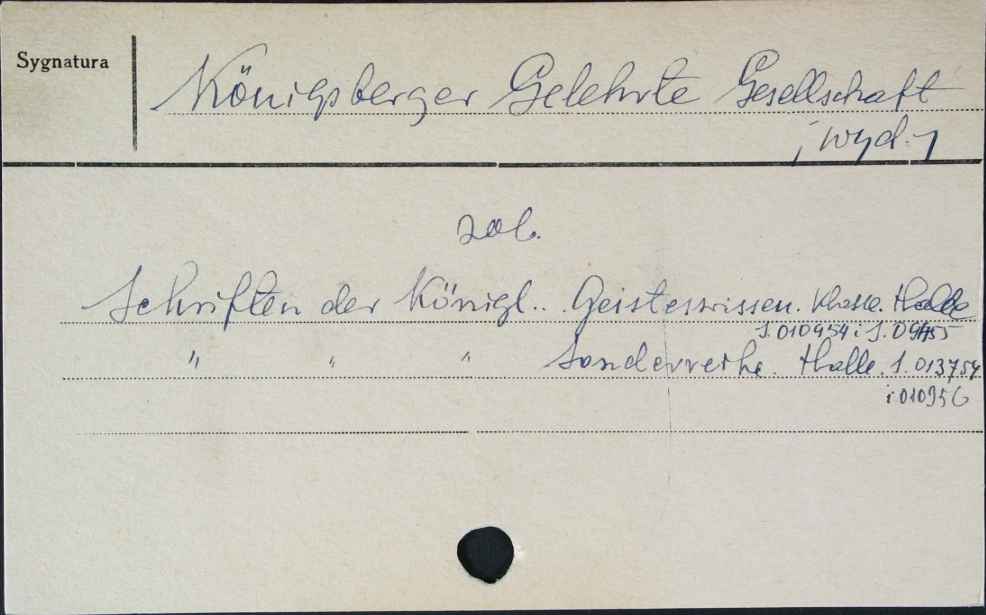 Sygnatura
Königsberger Gelehrte Gesellschaft
; wyd. ;
zob.
Schriften der Königl... Geisteswissen. Klasse. Halle
S. 010954 i S.
" " " Sonderreihe. Halle. S. 013754
i 010956